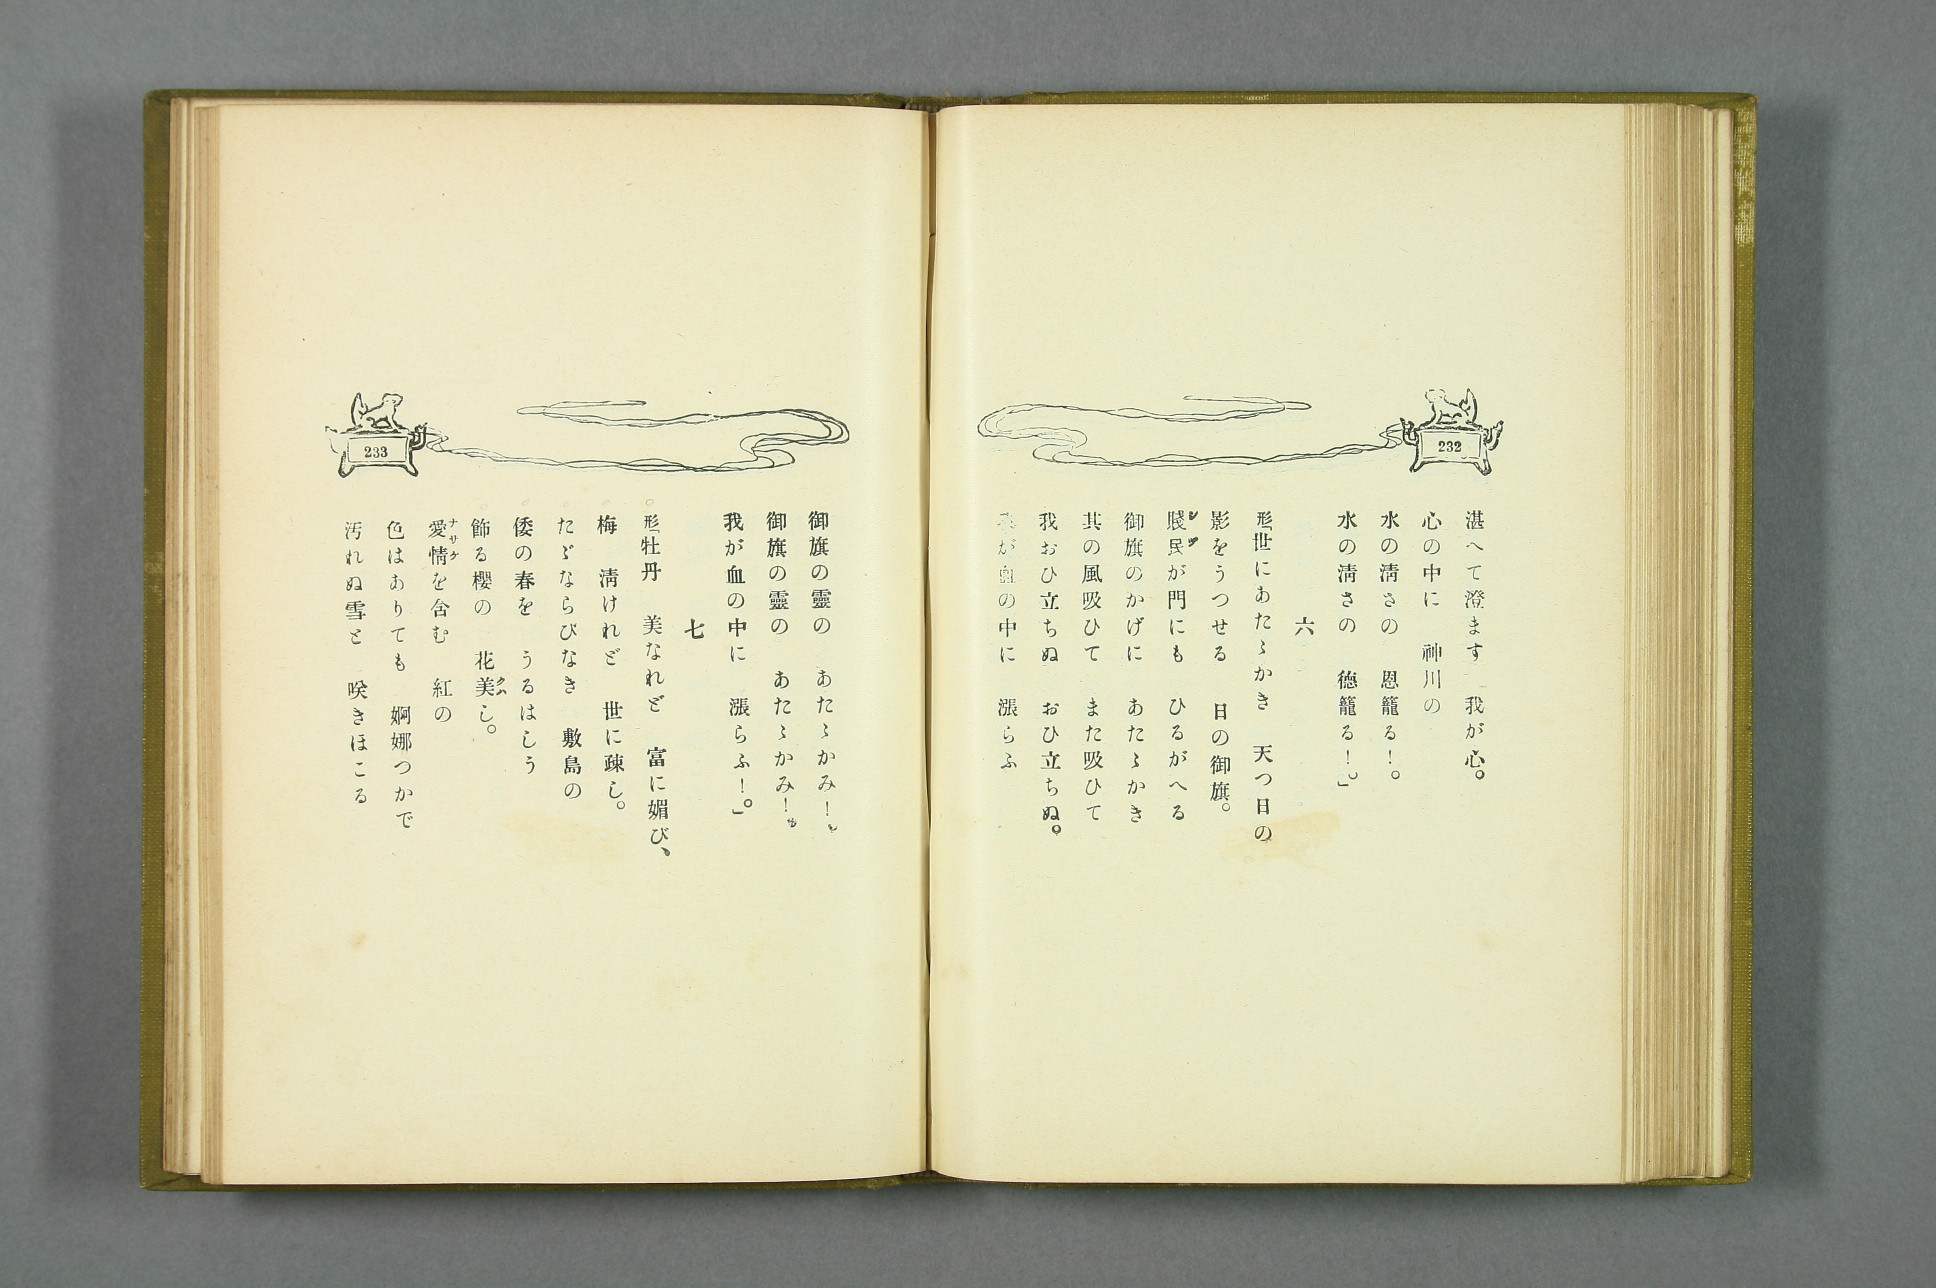 232
湛へて澄ます　我が心。
心の中に　神川の
水の淸さの　恩籠る！。
水の淸さの　德籠る！。」
六
形「世にあたゝかき　天つ日の
影をうつせる　日の御旗。
賤民が門にも　ひるがへる
御旗のかげに　あたゝかき
其の風吸ひて　また吸ひて
我おひ立ちぬ　おひ立ちぬ。
が血の中に　漲らふ
233
御旗の靈の　あたゝかみ！を
御旗の靈の　あたゝかみ！も
我が血の中に　漲らふ！。」
七
形「牡丹　美なれど　富に媚び、
梅　淸けれど　世に疎し。
たゞならびなき　敷島の
倭の春を　うるはしう
飾る櫻の　花美し。
愛情を含む　紅の
色はありても　婀娜つかで
汚れぬ雪と　咲きほこる